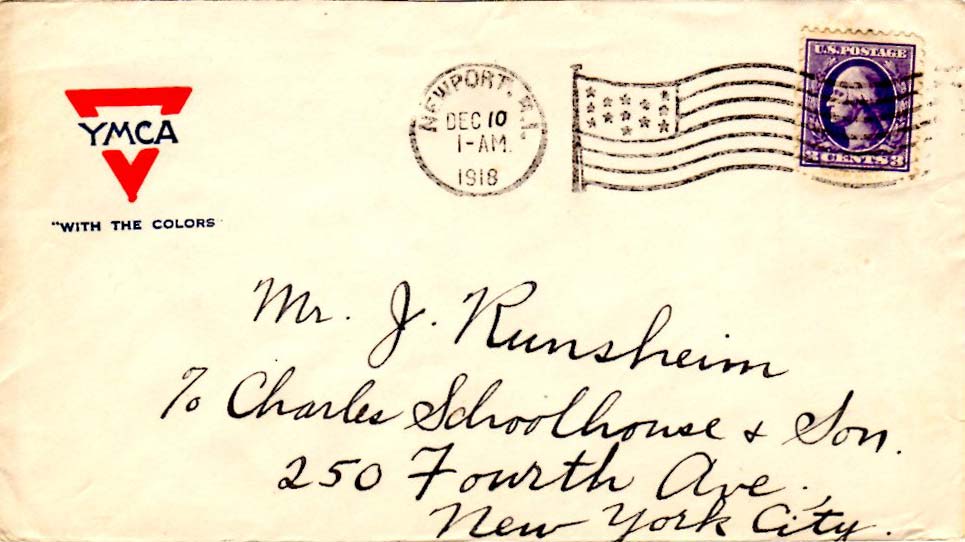 YMCA
"WITH THE COLORS
NEWPORT, R.I.
DEC 10
1-AM.
1918
U.S. POSTAGE
3 CENTS 3
Mr. J. Runsheim
℅ Charles Schoolhouse & Son.
250 Fourth Ave.,
New York City.